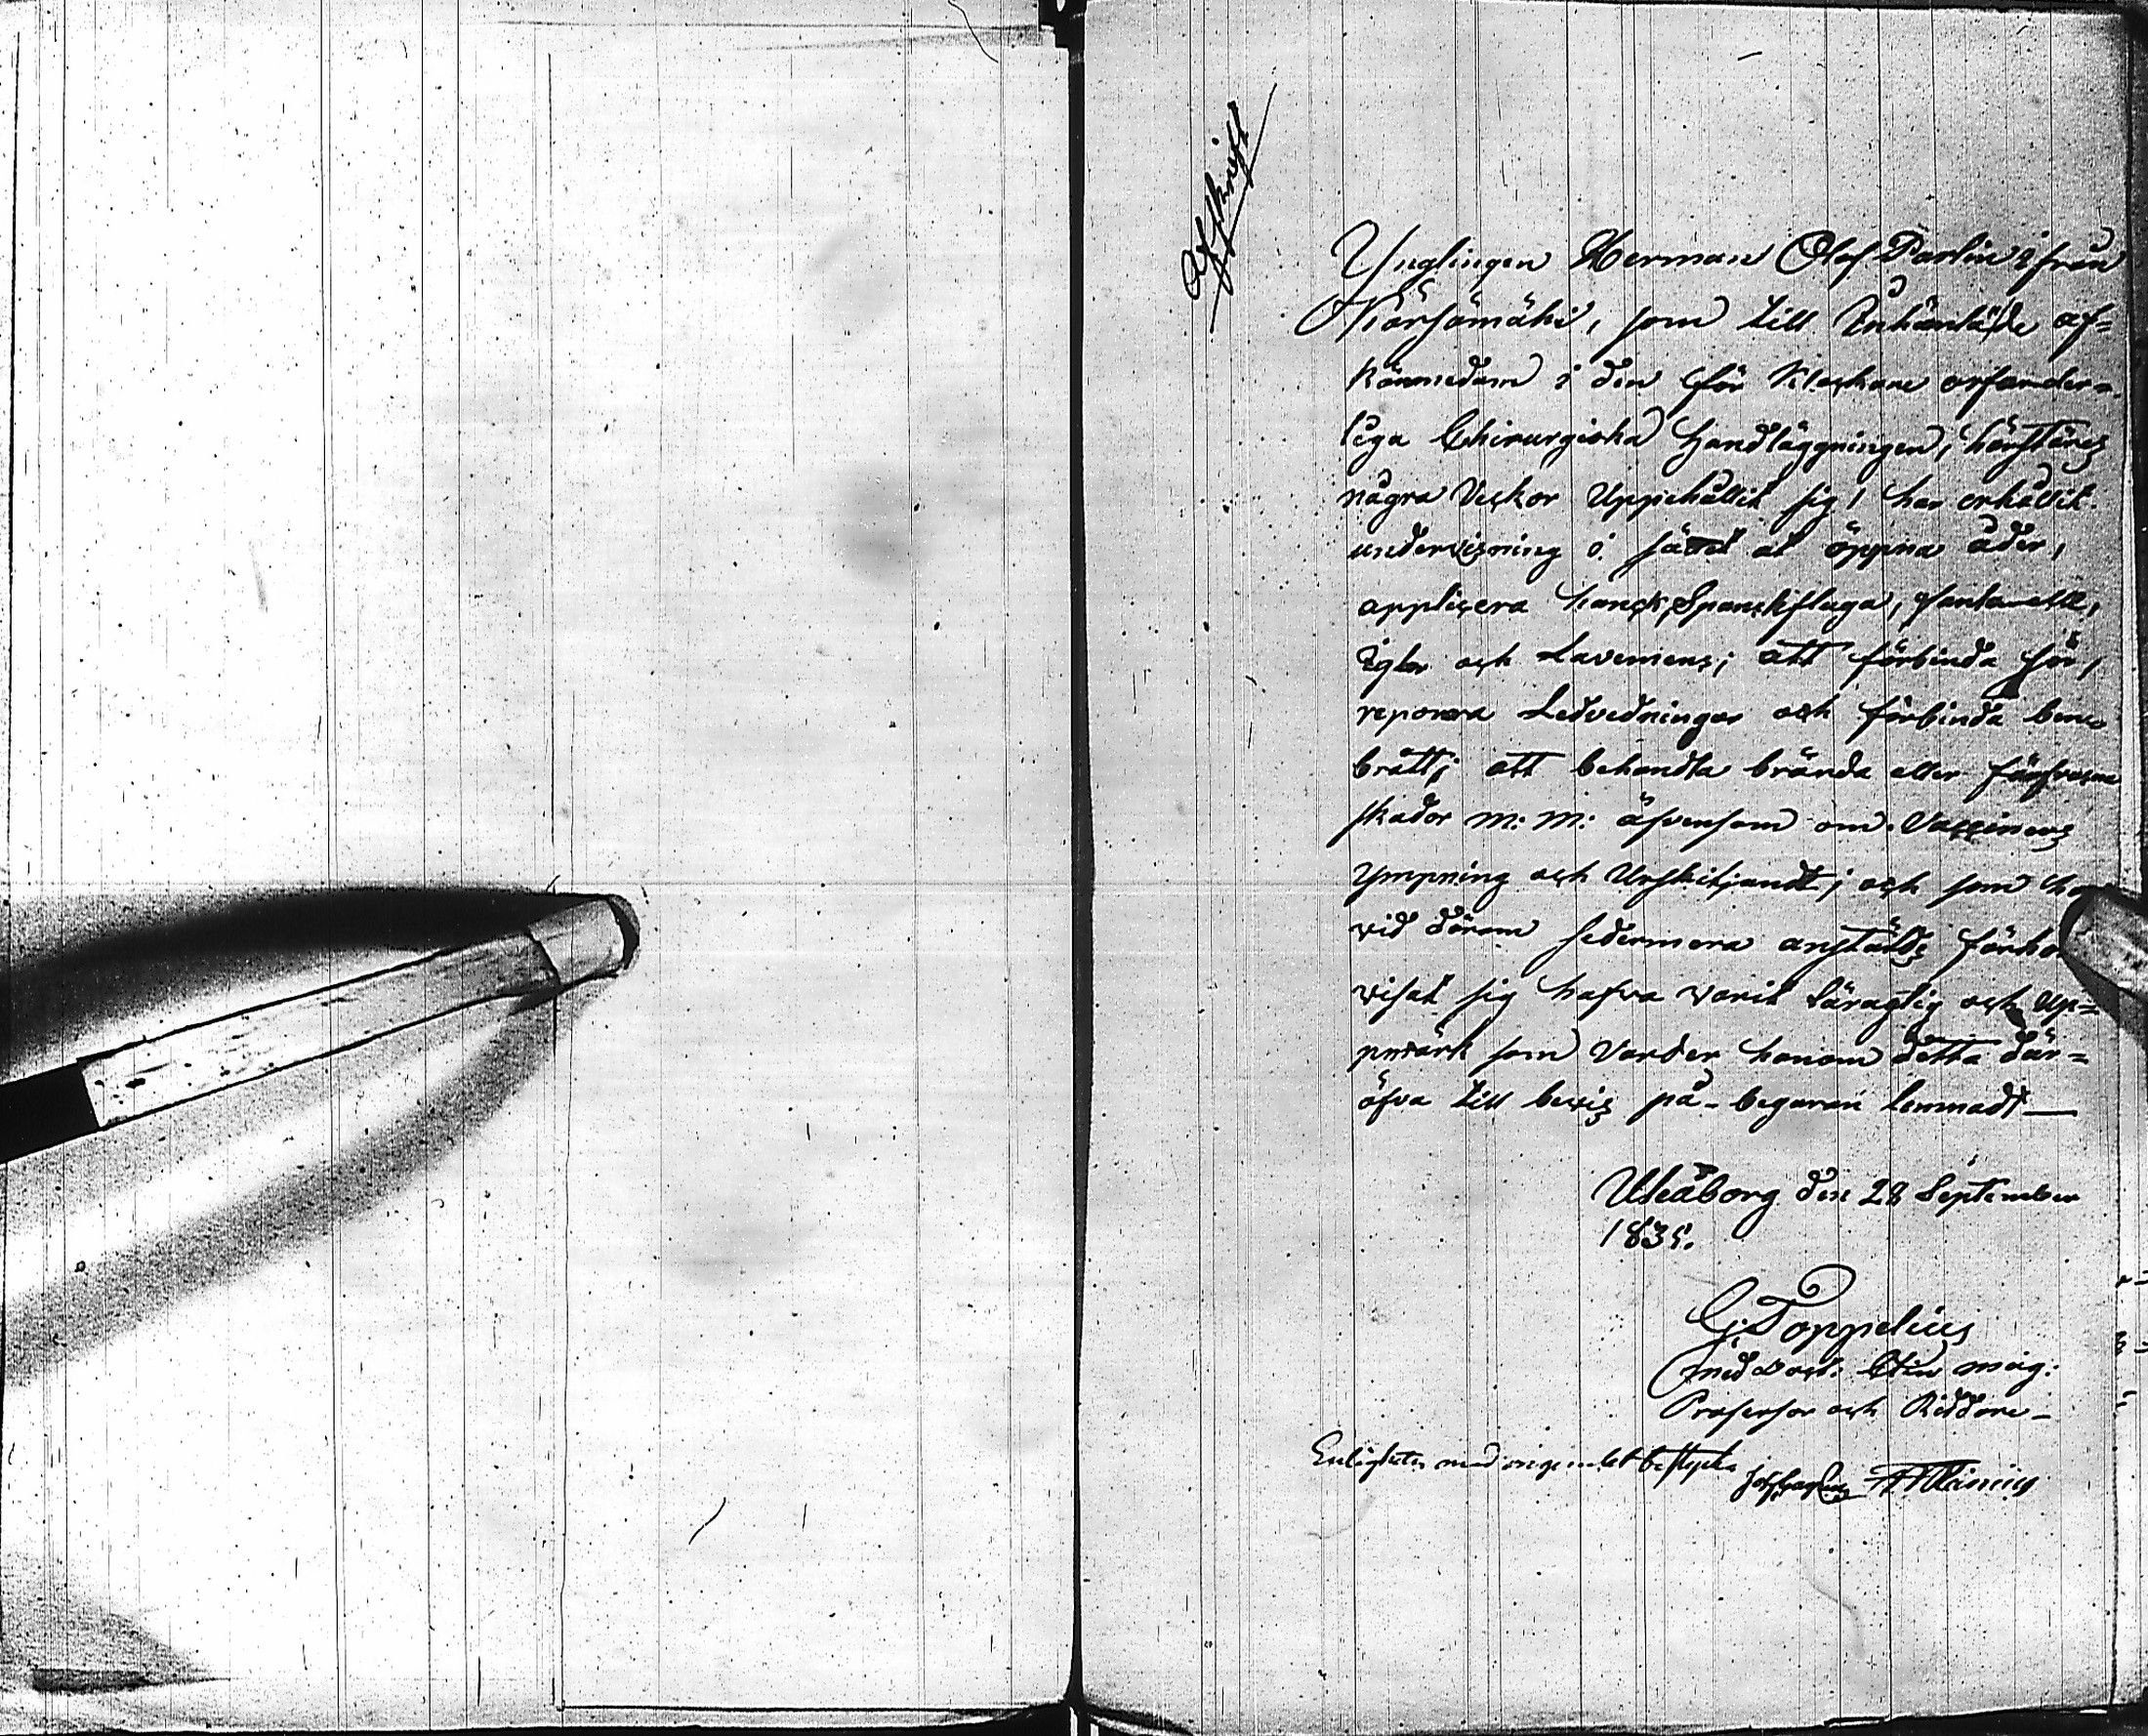 Afskrift
Ynglingen Herman Olof Parlin ifrån
Kärsämäki, som till Inhämtade af
kännedom i den för Klockare erforder=
liga Chirurgiska Handläggningen, härstädes
några Veckor Uppehållit sig, har erhållit
undervisning i sättet at öppna åder,
applicera Spanskfluga, fontanelle,
Iglar och Lavemens; att förbinda sår,
reponera Ledvedningar och förbinda ben=
brått; att behandla brända eller förfrusna
skador m: m: äfvensom om Vaccinens
Ympning och Urskiljandt; och som
vid däröm sedermera anstäldt
visat sig hafva varit läraktig och Up=
pmärk som Varder honom detta där=
öfva till bevis på begäran lemnadt —
Uleåborg den 28 September
1835.
G: Toppelius
Med: Doct: mag:
Professor och Riddare —
Enligheten med originalet bestyrka